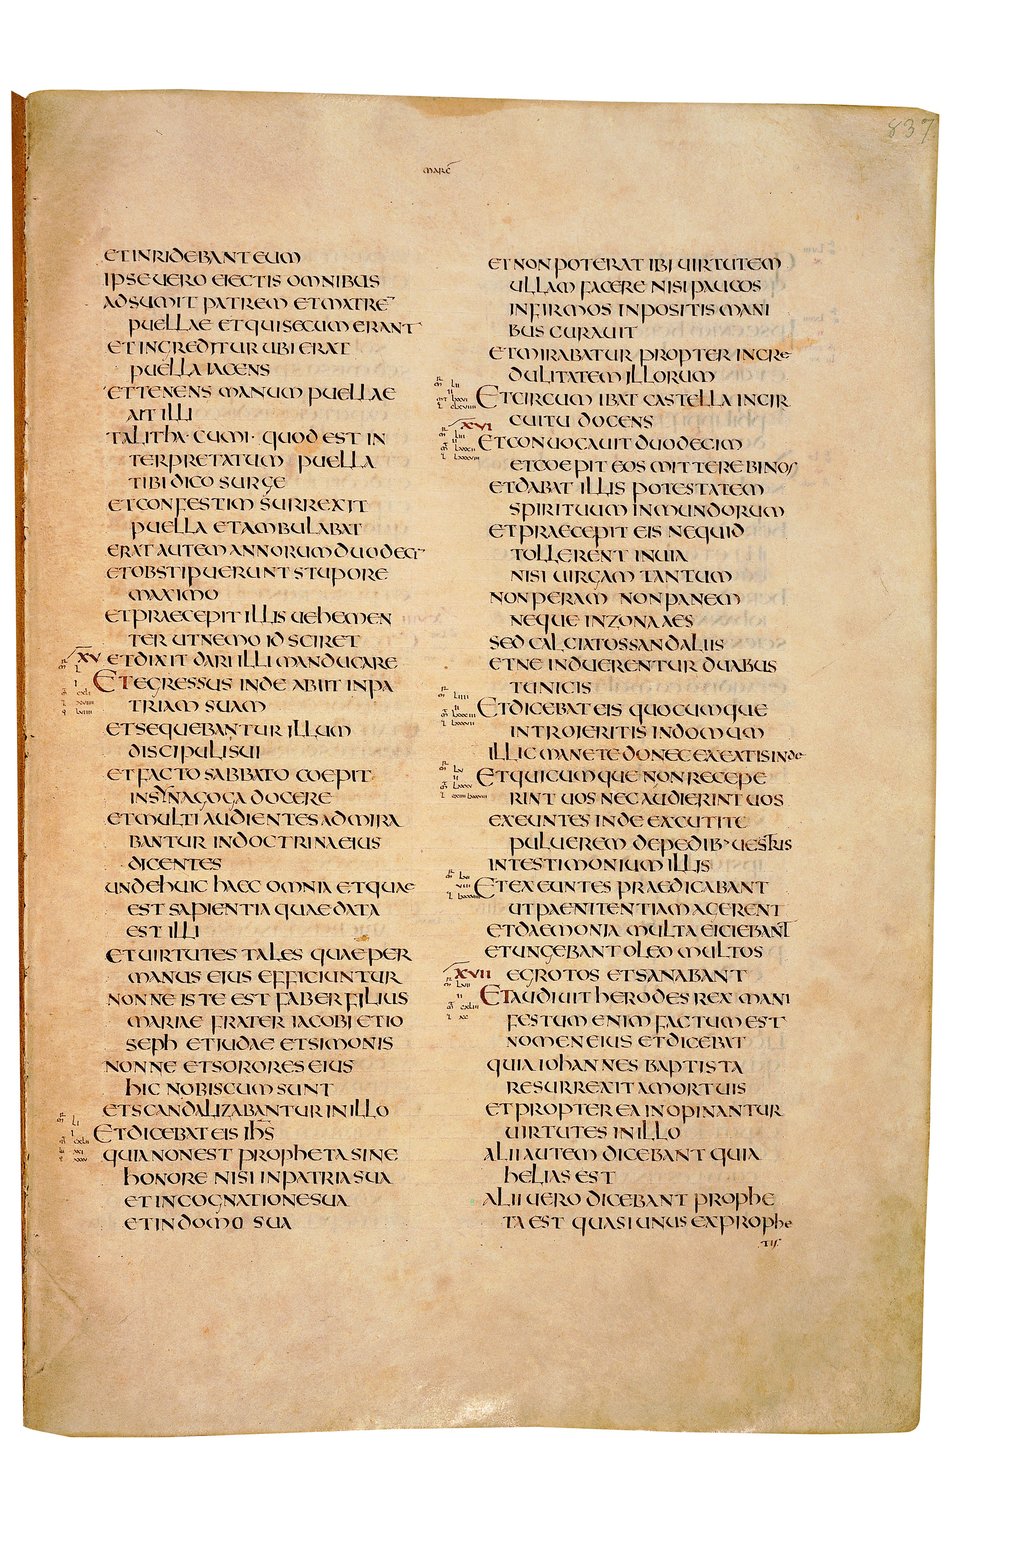 837
MARC
ET INRIDEBANT EUM
IPSE UERO EIECTIS OMNIBUS
ADSUMIT PATREM ET MATRE
PUELLAE ET QUI SECUM ERANT
ET INGREDITUR UBI ERAT
PUELLA IACENS
ET TENENS MANUM PUELLAE
AIT ILLI
TALITHA · CUMI · QUOD EST IN
TERPRETATUM PUELLA
TIBI DICO SURGE
ET CONFESTIM SURREXIT
PUELLA ET AMBULABAT
ERAT AUTEM ANNORUM DUODECI
ET OBSTIPUERUNT STUPORE
MAXIMO
ET PRAECEPIT ILLIS UEHEMEN
TER UT NEMO ID SCIRET
XV ET DIXIT DARI ILLI MANDUCARE
ET EGRESSUS INDE ABIIT IN PA
TRIAM SUAM
ET SEQUEBANTUR ILLUM
DISCIPULI SUI
ET FACTO SABBATO COEPIT
IN SYNAGOGA DOCERE
ET MULTI AUDIENTES ADMIRA
BANTUR IN DOCTRINA EIUS
DICENTES
UNDE HUIC HAEC OMNIA ET QUAE
EST SAPIENTIA QUAE DATA
EST ILLI
ET UIRTUTES TALES QUAE PER
MANUS EIUS EFFICIUNTUR
NONNE ISTE EST FABER FILIUS
MARIAE FRATER IACOBI ET IO
SEPH ET IUDAE ET SIMONIS
NONNE ET SORORES EIUS
HIC NOBISCUM SUNT
ET SCANDALIZABANTUR IN ILLO
LI
ET DICEBAT EIS IHS
QUIA NON EST PROPHETA SINE
HONORE NISI IN PATRIA SUA
ET IN COGNATIONE SUA
ET IN DOMO SUA
ET NON POTERAT IBI UIRTUTEM
ULLAM FACERE NISI PAUCOS
INFIRMOS INPOSITIS MANI
BUS CURAUIT
ET MIRABATUR PROPTER INCRE
DULITATEM ILLORUM
LII
ET CIRCUMIBAT CASTELLA IN CIR
CUITU DOCENS
XVI
LIII
ET CONUOCAUIT DUODECIM
ET COEPIT EOS MITTERE BINOS
ET DABAT ILLIS POTESTATEM
SPIRITUUM INMUNDORUM
ET PRAECEPIT EIS NE QUID
TOLLERENT IN UIA
NISI UIRGAM TANTUM
NON PERAM NON PANEM
NEQUE IN ZONA AES
SED CALCIATOS SANDALIIS
ET NE INDUERENTUR DUABUS
TUNICIS
LIIII
ET DICEBAT EIS QUOCUMQUE
INTROIERITIS IN DOMUM
ILLIC MANETE DONEC EXEATIS INDE
LV
ET QUICUMQUE NON RECEPE
RINT UOS NEC AUDIERINT UOS
EXEUNTES INDE EXCUTITE
PULUEREM DE PEDIB· UESTRIS
IN TESTIMONIUM ILLIS
LVI
ET EXEUNTES PRAEDICABANT
UT PAENITENTIAM AGERENT
ET DAEMONIA MULTA EICIEBANT
ET UNGEBANT OLEO MULTOS
XVII EGROTOS ET SANABANT
LVII
ET AUDIUIT HERODES REX MANI
FESTUM ENIM FACTUM EST
NOMEN EIUS ET DICEBAT
QUIA IOHANNES BAPTISTA
RESURREXIT A MORTUIS
ET PROPTEREA INOPINANTUR
UIRTUTES IN ILLO
ALII AUTEM DICEBANT QUIA
HELIAS EST
ALII UERO DICEBANT PROPHE
TA EST QUASI UNUS EX PROPHE
TIS